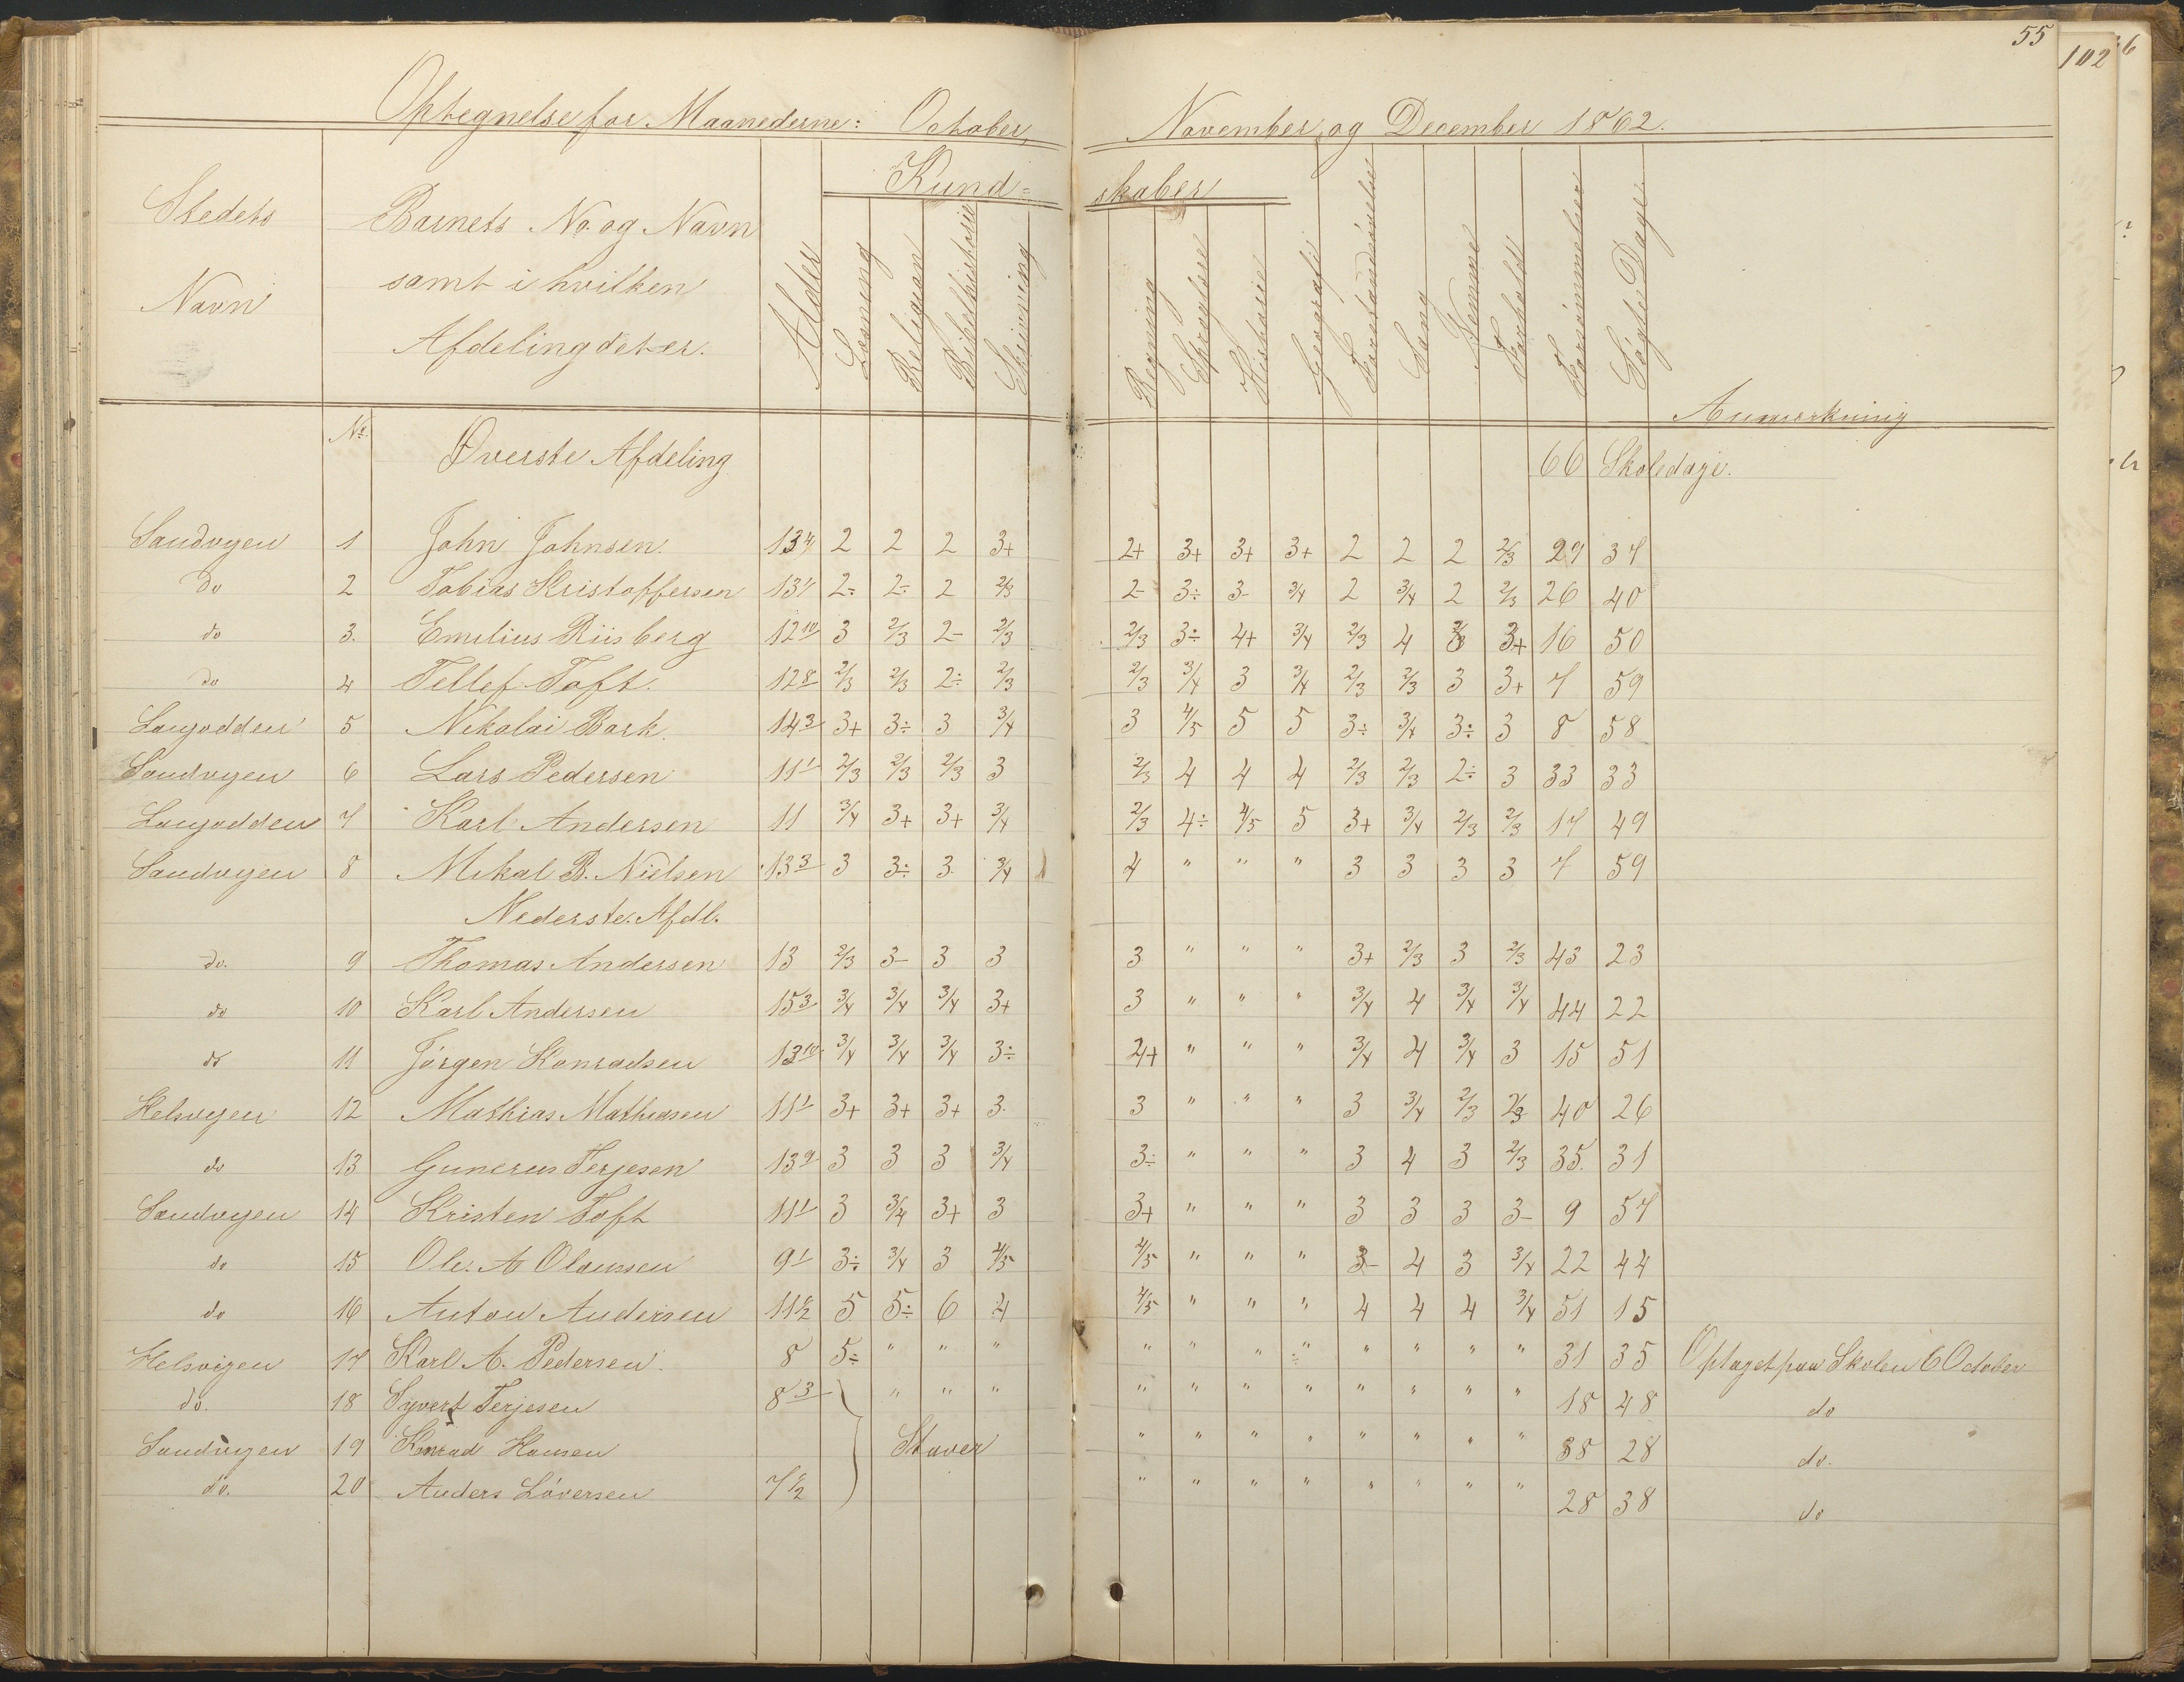 55
102
6
Optegnelse for Maanederne: October, November og December 1862.
Stedets Navn
Barnets No. og Navn samt i hvilken Afdeling det er.
Alder
Kundskaber
Læsning
Religion
Bibelhistorie
Skrivning
Regning
Sproglære
Historie
Geografi
Forstandsøvelse
Sang
Nemme
Forhold
Forsømmelser
Søgte Dage
Anmærkning
No. Øverste Afdeling 66 Skoledage.
Sandvigen 1 John Johnsen. 13 4/ 2 2 2 3+ 2+ 3+ 3+ 3+ 2 2 2 2/3 29 37
do 2 Tobias Kristoffersen 13 1/ 2÷ 2÷ 2 2/3 2- 3÷ 3- 3/4 2 3/4 2 2/3 26 40
do 3. Emilius Riisberg 12 10/ 3 2/3 2- 2/3 2/3 3÷ 4+ 3/4 2/3 4 3 3+ 16 50
do 4 Tellef Toft. 12 8/ 2/3 2/3 2÷ 2/3 2/3 3/4 3 3/4 2/3 2/3 3 3+ 7 59
Langodden 5 Nikolai Bark. 14 3/ 3+ 3÷ 3 3/4 3 4/5 5 5 3÷ 3/4 3÷ 3 8 58
Sandvigen 6 Lars Pedersen 11 1/ 2/3 2/3 2/3 3 2/3 4 4 4 2/3 2/3 2÷ 3 33 33
Langodden 7 Karl Andersen 11 3/4 3+ 3+ 3/4 2/3 4÷ 4/5 5 3+ 3/4 2/3 2/3 17 49
Sandvigen 8 Mikal B. Nielsen 13 3/ 3 3÷ 3. 3/4 4 " " " 3 3 3 3 7 59
Nederste. Afdl.
do. 9 Thomas Andersen 13 2/3 3- 3 3 3 " " " 3+ 2/3 3 2/3 43 23
do 10 Karl Andersen 15 3/ 3/4 3/4 3/4 3+ 3 " " " 3/4 4 3/4 3/4 44 22
do 11 Jörgen Konradsen 13 10/ 3/4 3/4 3/4 3÷ 4+ " " " 3/4 4 3/4 3 15 51
Helsvigen 12 Mathias Mathiasen 11 1/ 3+ 3+ 3+ 3. 3 " " " 3 3/4 2/3 2/3 40 26
do 13 Gunerus Terjesen 13 9/ 3 3 3 3/4 3÷ " " " 3 4 3 2/3 35. 31
Sandvigen 14 Kristen Toft 11 1/ 3 3/4 3+ 3 3+ " " " 3 3 3 3- 9 57
do 15 Ole. A Olaussen 9 1/ 3÷ 3/4 3 4/5 4/5 " " " 3- 4 3 3/4 22 44
do 16 Anton Andersen 11 1/2 5 5÷ 6 4 4/5 " " " 4 4 4 3/4 51 15
Helsvigen 17 Karl A. Pedersen. 8 5÷ " " " " " " " " " " " 31 35 Optaget paa Skolen 6 October
do. 18 Syvert Terjesen 8 3/ " " " " " " " " " " " 18 48 do
Sandvigen 19 Konrad Hansen Staver " " " " " " " " 38 28 do.
do. 20 Anders Löversen 7 1/2 " " " " " " " " 28 38 do